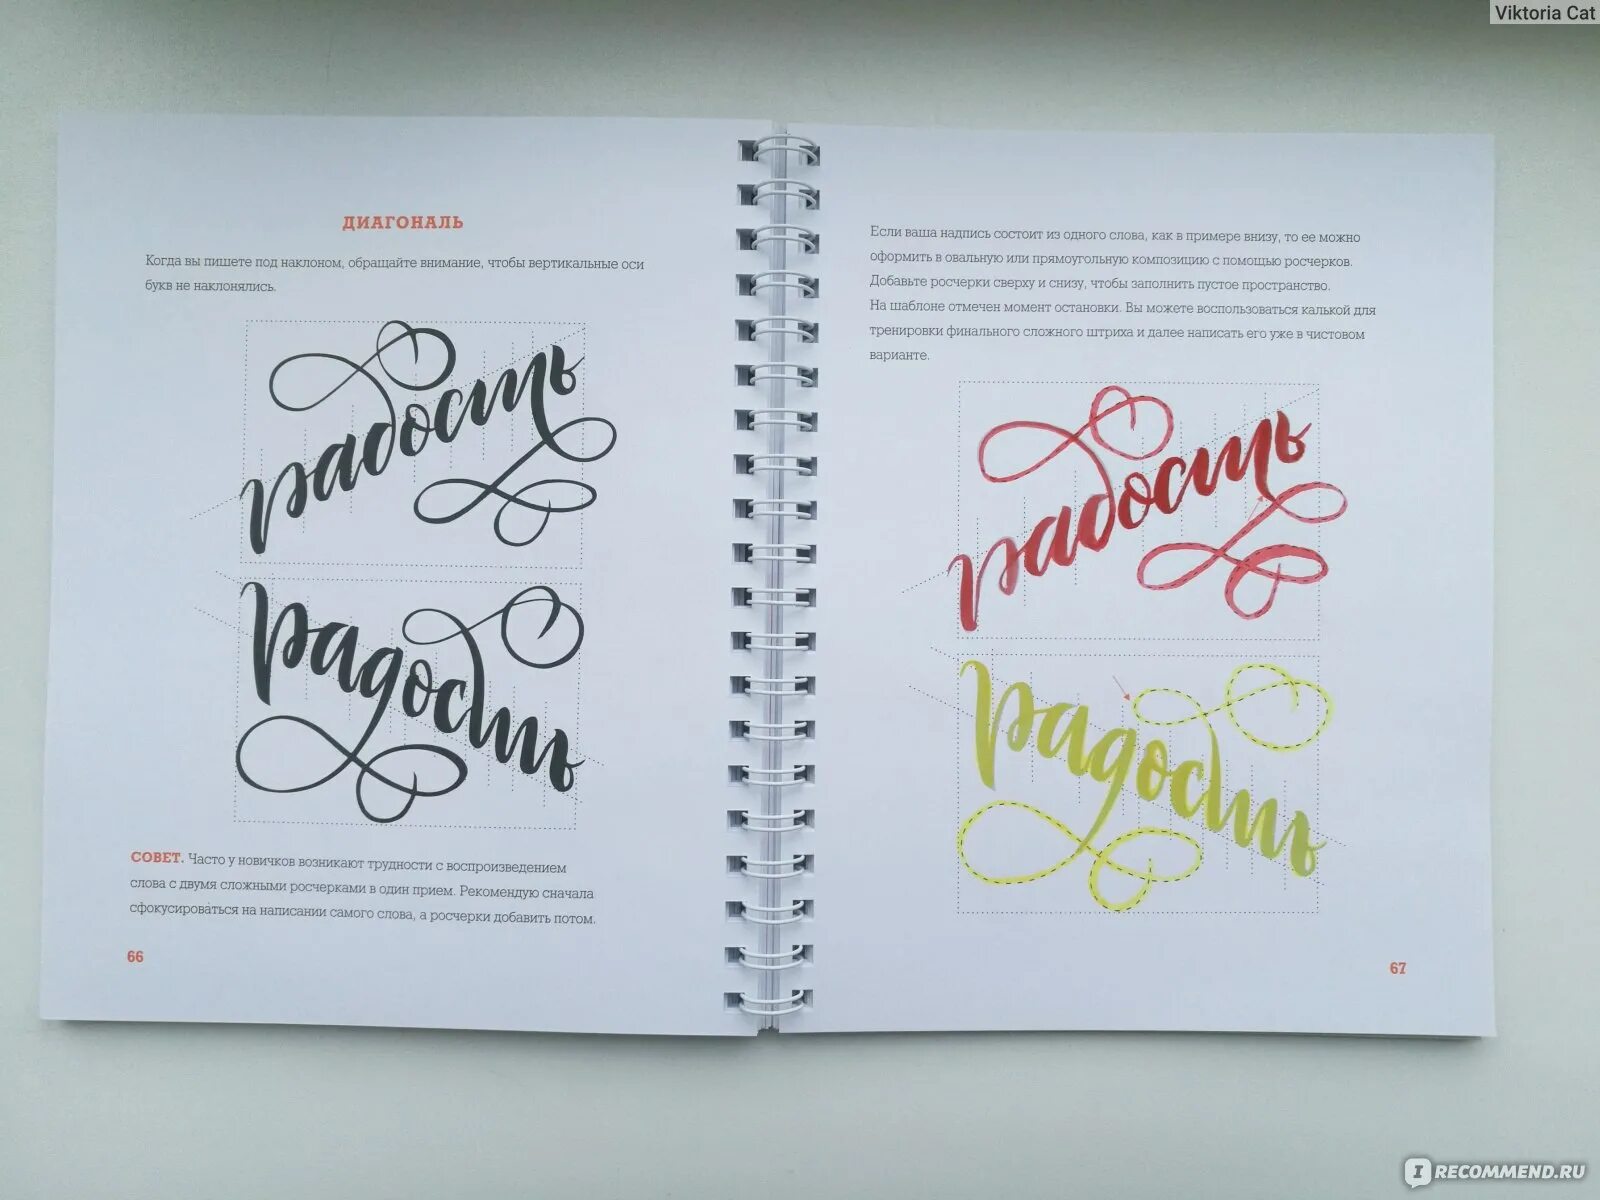 Viktoria Cat
ДИАГОНАЛЬ
Когда вы пишете под наклоном, обращайте внимание, чтобы вертикальные оси
букв не наклонялись.
радость
радость
СОВЕТ. Часто у новичков возникают трудности с воспроизведением
слова с двумя сложными росчерками в один прием. Рекомендую сначала
сфокусироваться на написании самого слова, а росчерки добавить потом.
66
Если ваша надпись состоит из одного слова, как в примере внизу, то ее можно
оформить в овальную или прямоугольную композицию с помощью росчерков.
Добавьте росчерки сверху и снизу, чтобы заполнить пустое пространство.
На шаблоне отмечен момент остановки. Вы можете воспользоваться калькой для
тренировки финального сложного штриха и далее написать его уже в чистовом
варианте.
радость
радость
67
IRECOMMEND.RU